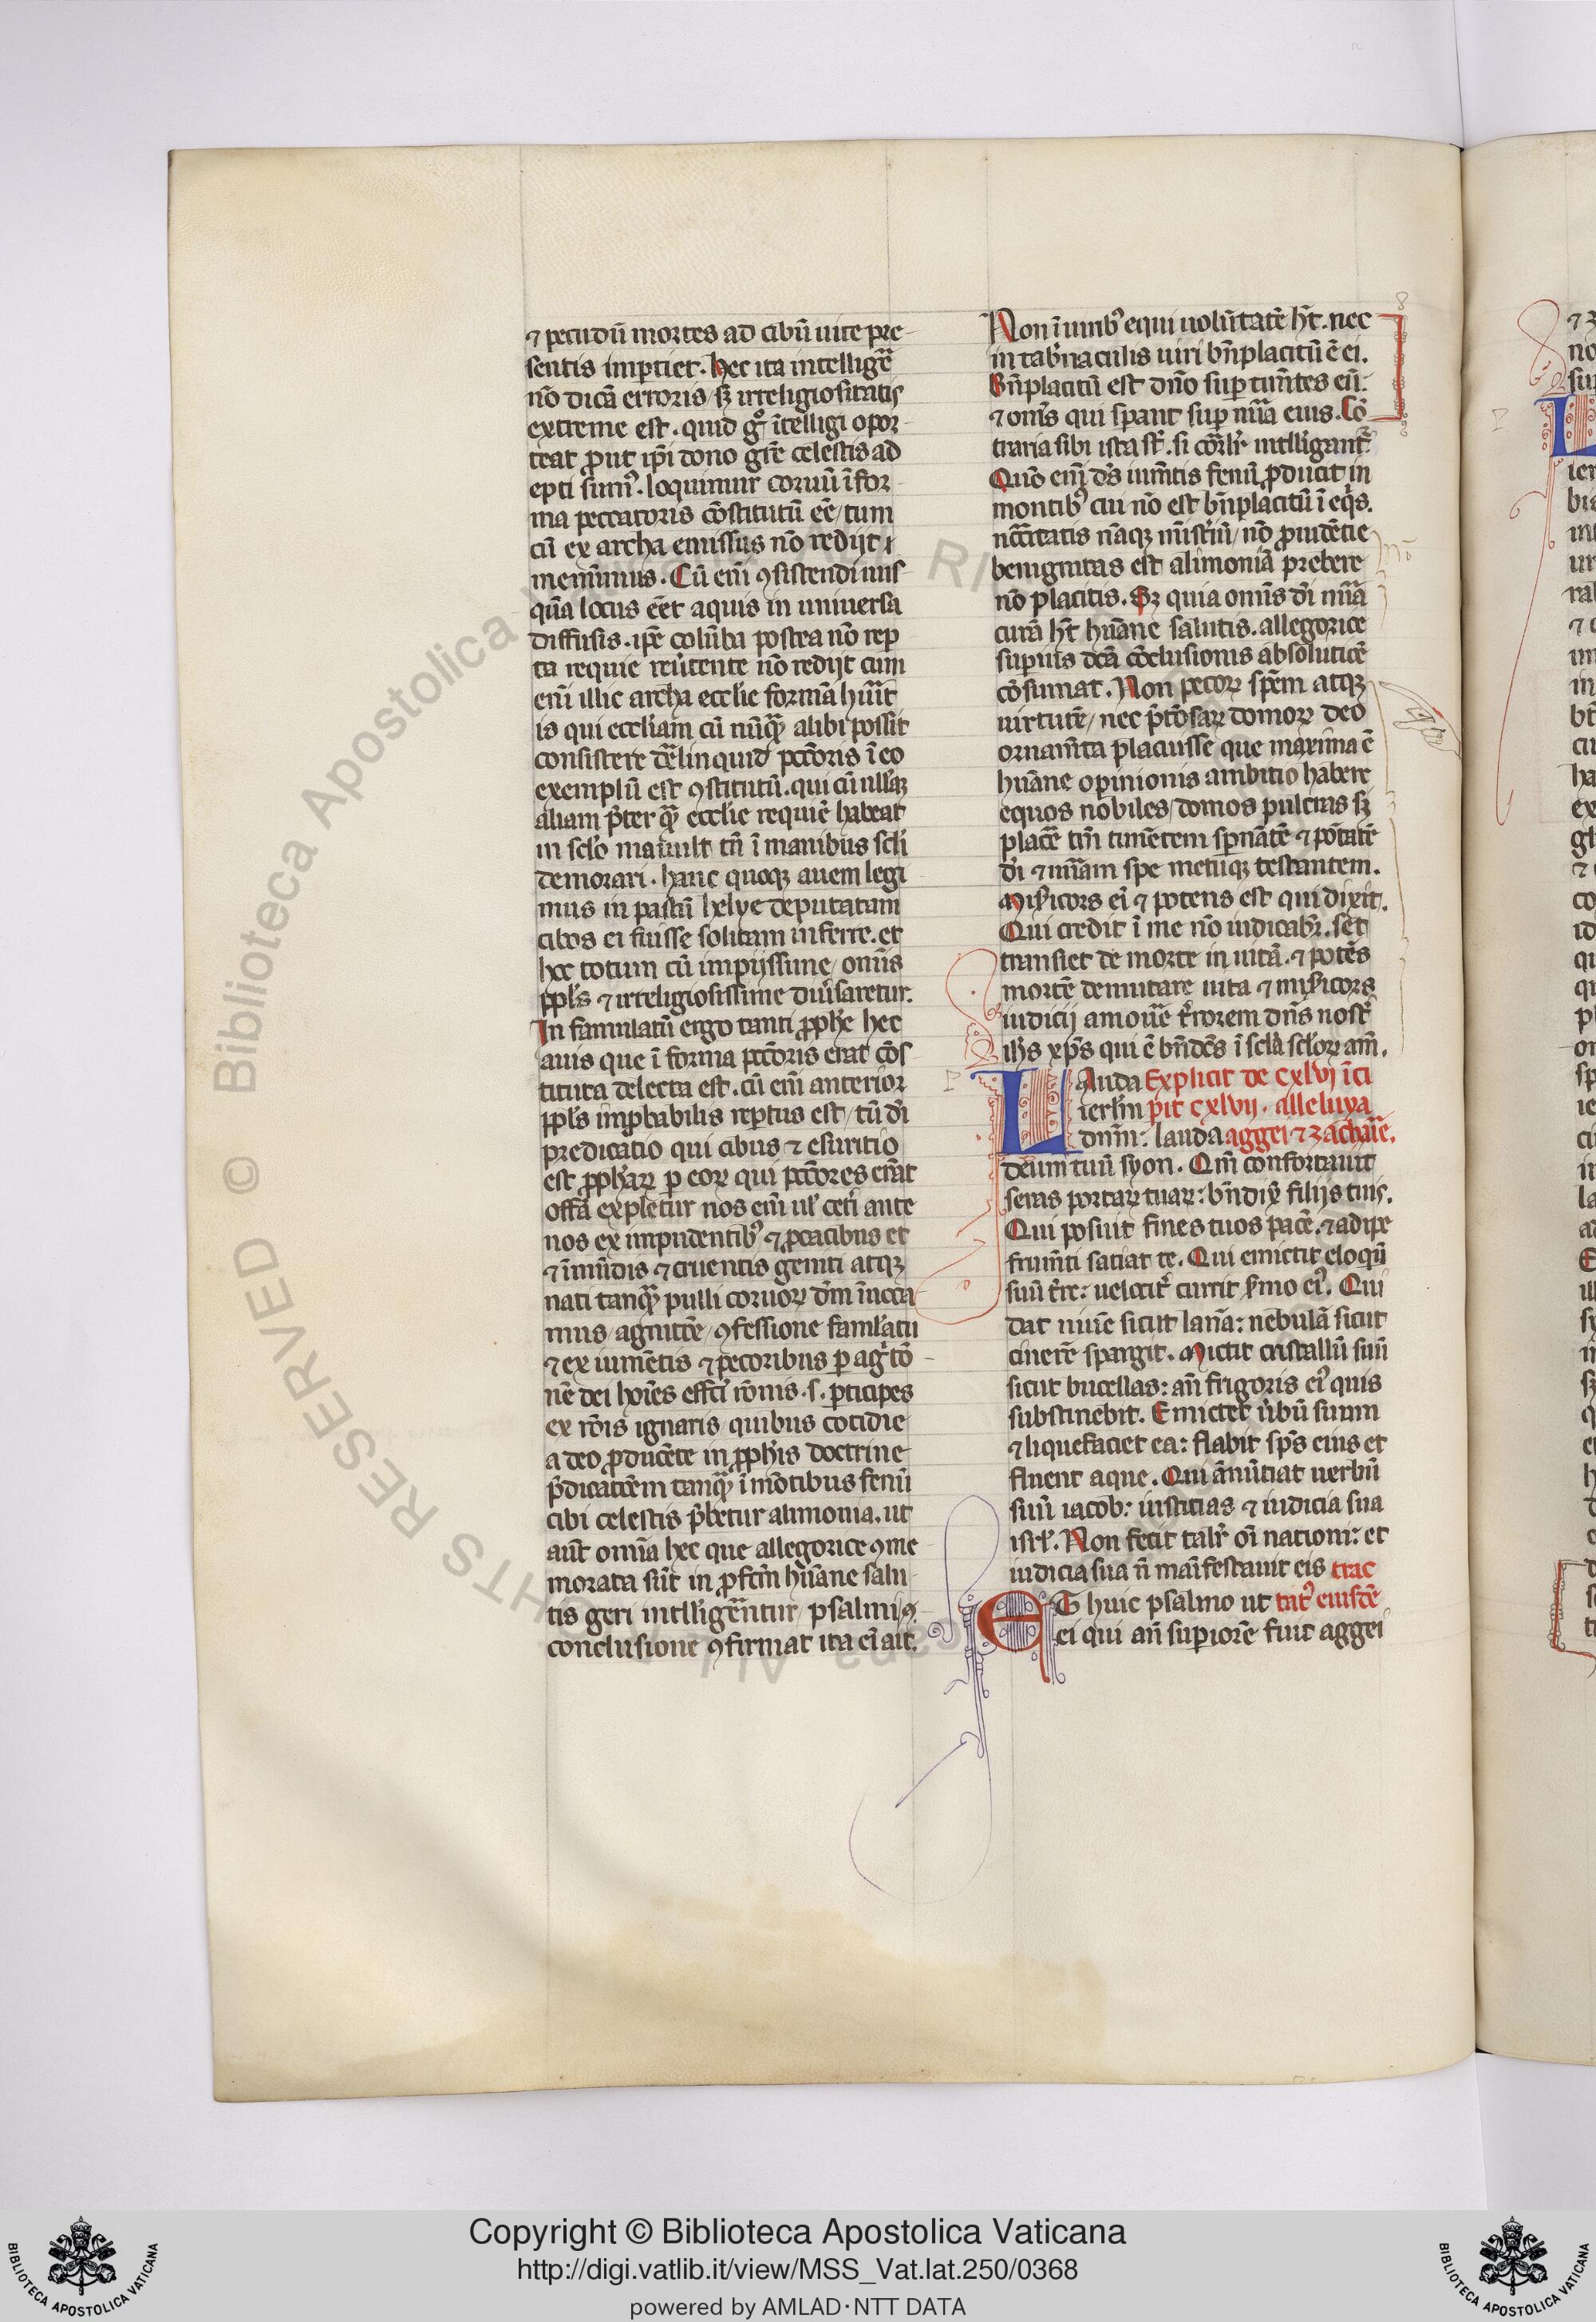 ⁊ pecudū mortes ad cibū uite pre-
sentis imp̱tiet. hec ita intelligē̄
nō dicā erroris / sꝫ irreligiositatis
extreme est. quid gͦ ītelligi opor-
teat ꝓut ip̄i dono gr̄e celestis ad
epti sumꝰ. loquimur coruū ī for-
ma peccatoris cōstitutū eē / tum
cū ex archa emissus nō redijt ⁊
meminimus. Cū eni ꝯsistendi nus
qua locus eēt aquis in uniuersa
diffusis. ip̄e colūba postea nō rep̱
ta requie reūtente nō redijt cum
eni illic archa eccl̄ie formā hūit
is qui eccl̄iam cū nūqͣꝫ alibi possit
consistere de̅linquid pcc̄oris ī eo
exemplū est ꝯstitutū. qui cū nullāꝫ
aliam p̄ter qͣꝫ eccl̄ie requiē habeat
in scl̄o mauult tn̄ ī manibus scl̄i
demorari. hanc quoqꝫ auem legi
mus in pastū helye deputatam
cibos ei fuisse solitam inferre. et
hoc totum cū impijssime / omīs
pp̄ls ⁊ irreligiosissime diuūsaretur.
In famulatū ergo tanti ꝓph̄e hec
auis que ī forma pcc̄oris erat cōs
tituta delecta est. cū eni anterior
pp̄ls imꝓbabilis rep̱tus est / tū dī
predicatio qui cibus ⁊ esuritio
est ꝓph̄aꝝ p̱ eoꝝ qui pcc̄ores erāt
offā expletur nos eni ul̄ cet̄i ante
nos ex impudentibꝰ ⁊ ꝓcacibus et
⁊ īmūdis ⁊ cruentis geniti atqꝫ
nati tanqͣꝫ pulli coruoꝝ dm̄ īuoca
mus / agnitōe / ꝯfessione famulatu
⁊ ex iumētis ⁊ pecoribus p̱ agͥtō
nē dei hoīes effcī rōnis .s. p̱ticipes
ex rōis ignaris / quibus cotidie
a deo ꝓducēte in ꝓph̄is doctrine
p̄dicatōem tanqͣꝫ ī mōtibus fenū
cibi celestis p̄betur alimonia. ut
aūt omīa hec que allegorice ꝯme
morata sūt in ꝓfcm̄ hūane salu
tis geri intll̄igerentur / psalmi ꝯ
conclusione ꝯfirmat ita ei ait.
Non ī uiribꝰ equi uolūtatē ht̄. nec
in tab̄naculis uiri bn̄placitū ē ei.
Bn̄placitū est dn̄o sup̱ timētes eū:
⁊ om̄s qui sp̱ant sup̱ mīa eius. Cō
traria sibi ista st̄. si cōr̄lr̄ intll̄igantͬ.
Quō eni ds̄ iumētis fenū ꝓducit in
montibꝰ cui nō est bn̄placitū ī eqͥs.
ncc̄itatis nāqꝫ mīst̄iū / nō ꝓuidētie
benignitas est alimoniā prebere
nō placitis. Sꝫ quia omīs dī mīa
curā ht̄ hūane salutis. allegorice
sup̱ius dcā cōclusionis absolutiōē
cōsumat. Non pecoꝝ spēm atqꝫ
uirtutē / nec p̄tōsaꝝ domoꝝ deo
ornamēta placuisse que maxima ē
hūane opinionis ambitio habere
equos nobiles / domos pulcras sꝫ
placē̄ tm̄ timētem sp̱nātē ⁊ pōtatē
dī ⁊ mīam spe metuqꝫ testantem.
Mis̄icors ei ⁊ potens est qui dixit.
Qui credit ī me nō iudicabͬ. set
transiet de morte in uitā. ⁊ potēs
mortē demutare uita ⁊ mis̄icors
iudicij amouē̄ t̄rorem dn̄s nostͬ
ih̄s xp̄s qui ē bn̄dc̄s ī scl̄a scl̄oꝝ am̄.
LAuda Explicit de cxlvj īci
ierl̄m pit cxlvij. alleluya
dnm̄: lauda aggei ⁊ zachaīe.
deum tuū syon. Qm̄ confortauit
seras portaꝝ tuaꝝ: bn̄dix̄ filijs tuis.
Qui posuit fines tuos pacē. ⁊ adipe
frumēti satiat te. Qui emictit eloqͥū
suū t̄re: uelocitͬ currit s̄mo eiꝰ. Qui
dat niuē sicut lanā: nebulā sicut
cinerē spargit. Mictit cristallū suū
sicut bucellas: an̄ frigoris eiꝰ quis
substinebit. Emictet ūbū suum
⁊ liquefaciet ea: flabit sp̄s eius et
fluent aque. Qui ānūtiat uerbū
suū iacob: iustitias ⁊ iudicia sua
isrl̄. Non fecit talr̄ oī nationi: et
iudicia sua n̄ manifestauit eis trac
ET huic psalmo ut tatꝰ eiusdē
ei qui an̄ sup̱iorē fuit aggei
Copyright © Biblioteca Apostolica Vaticana
http://digi.vatlib.it/view/MSS_Vat.lat.250/0368
powered by AMLAD·NTT DATA
BIBLIOTECA APOSTOLICA VATICANA
BIBLIOTECA APOSTOLICA VATICANA